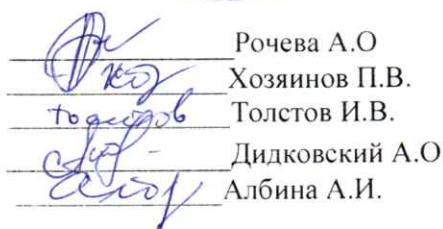 Рочева А.О
Хозяинов П.В.
Толстов И.В.
Дидковский А.О
Албина А.И.